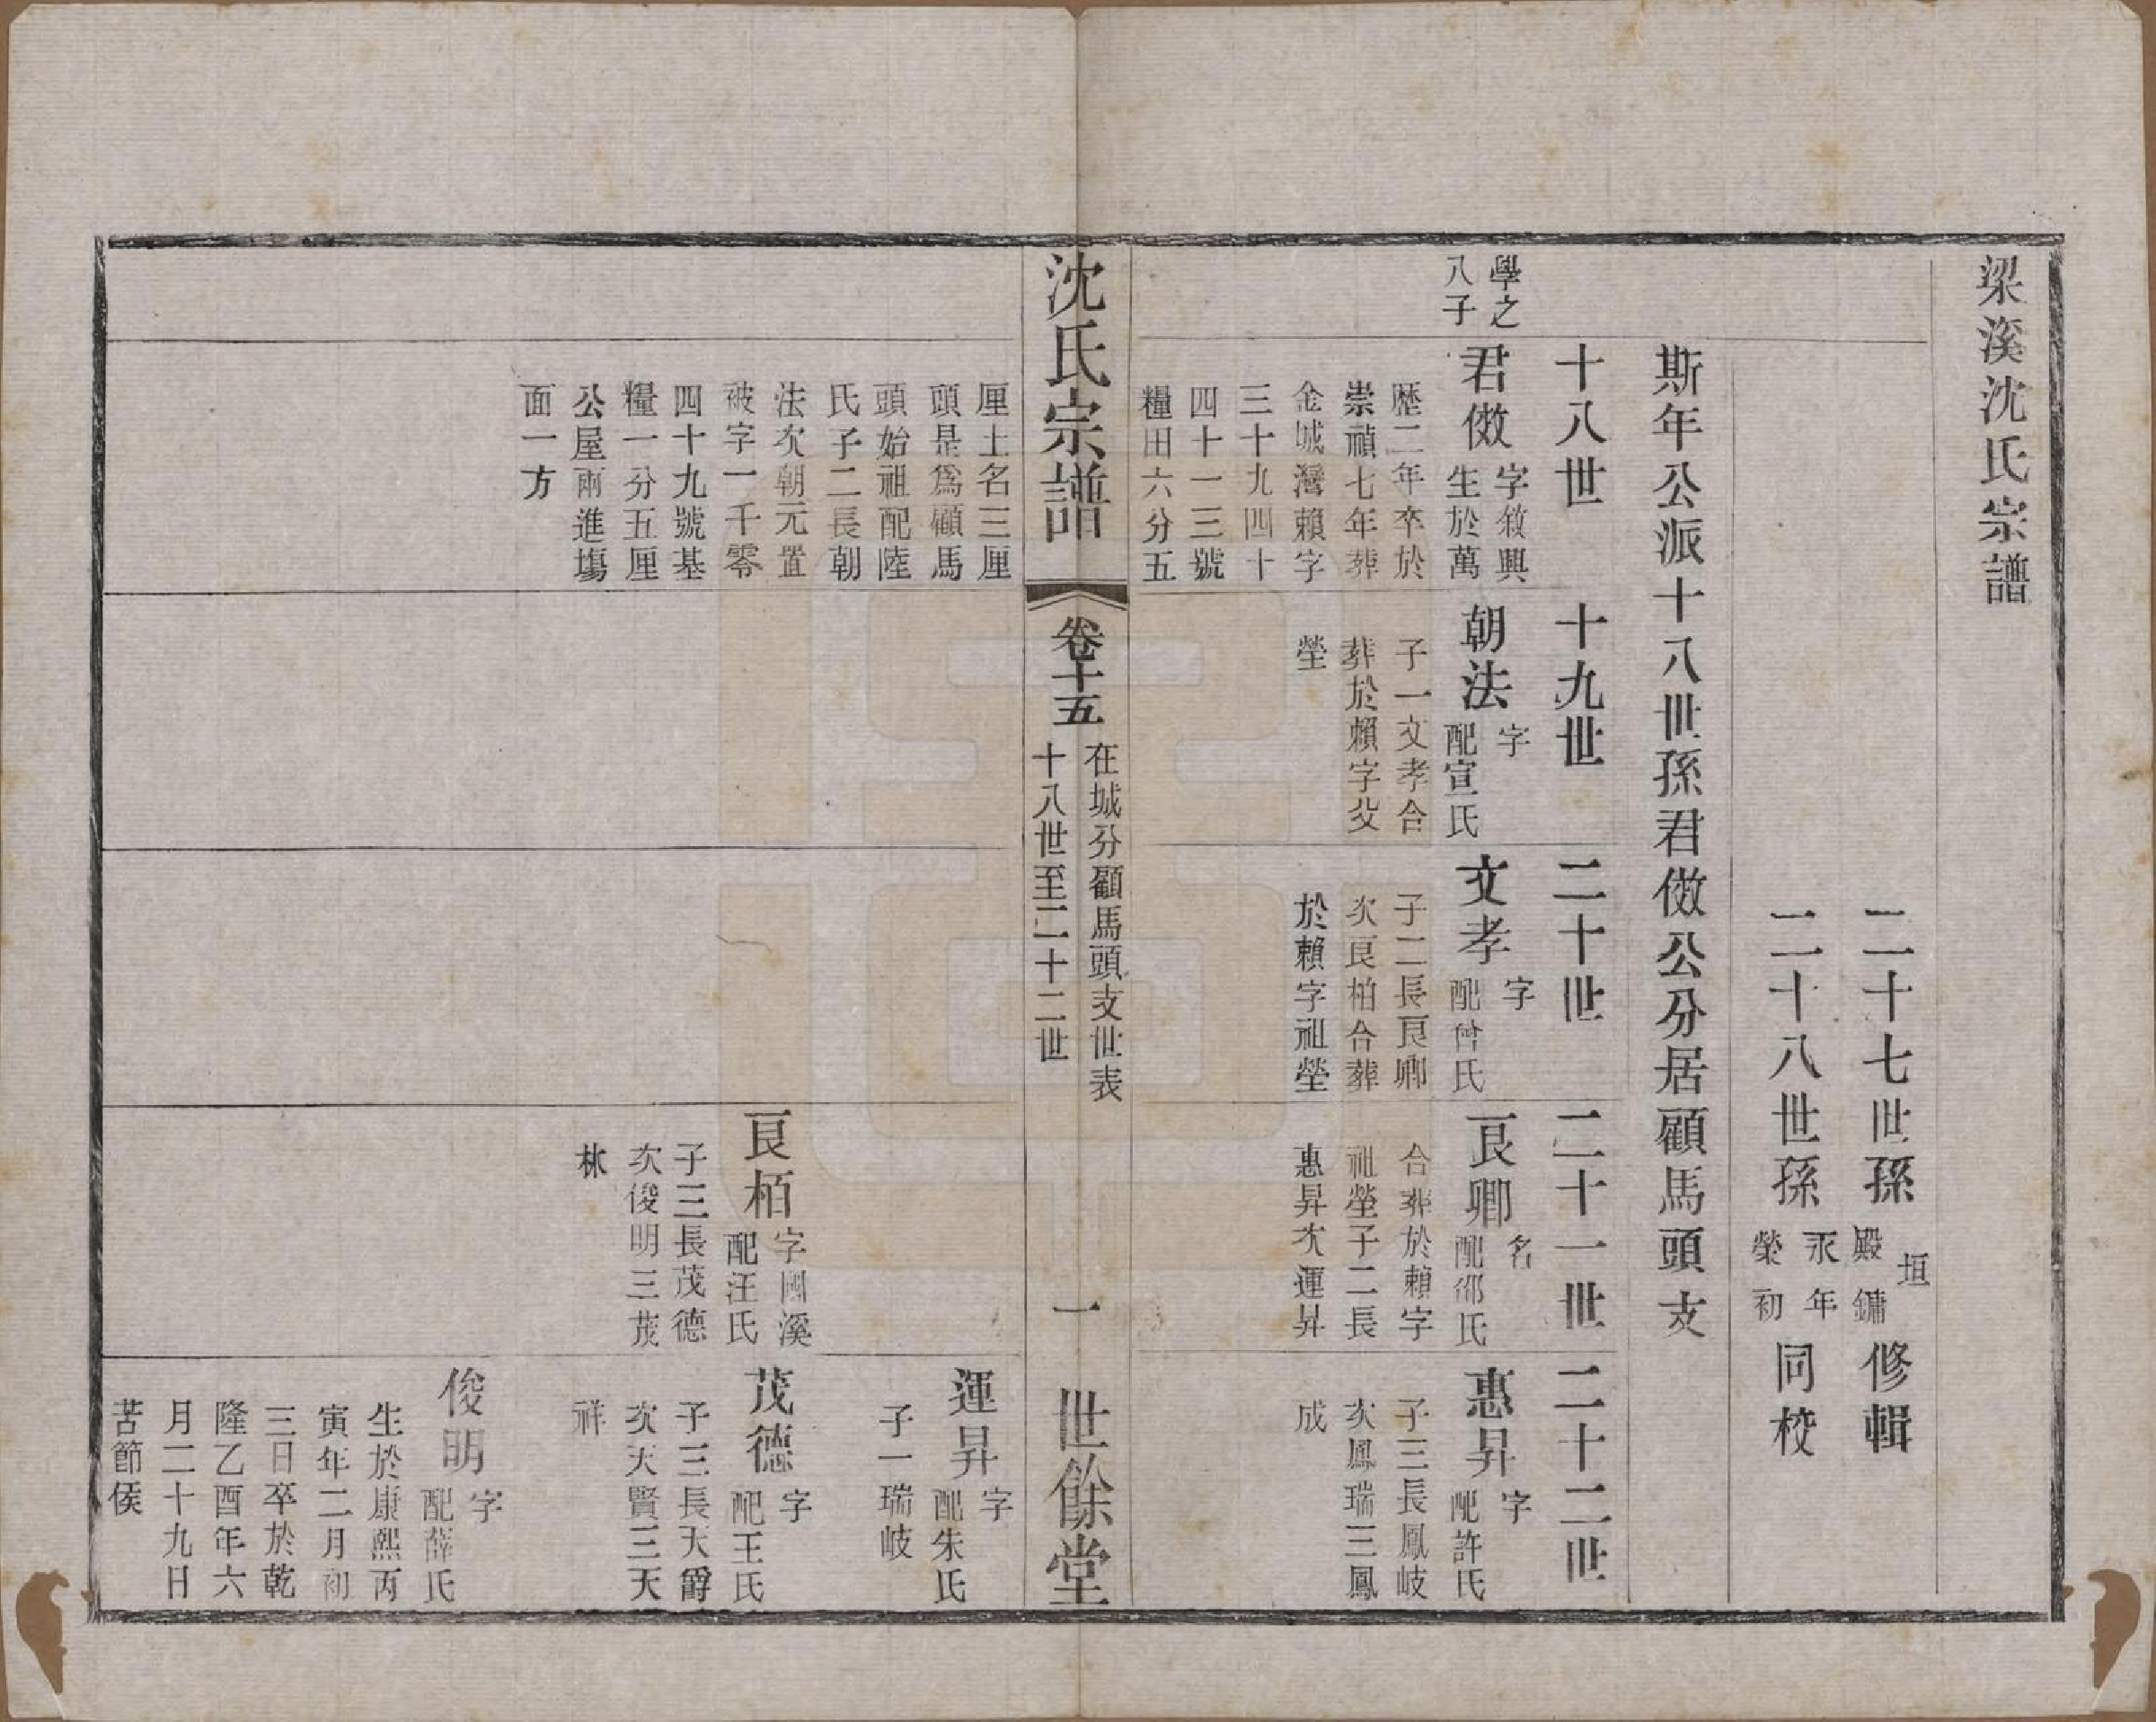 梁溪沈氏宗譜
二十七世孫 殿鏞 垣 修輯
二十八世孫 永年 榮初 同校
斯年公派十八世孫君倣公分居顧馬頭支
十八世
十九世
二十世
二十一世
二十二世
學之
八子
君倣 字敘興
生於萬
歷二年卒於
崇禎七年葬
金城灣賴字
三十九四十
四十一三號
糧田六分五
朝法 字
配宣氏
子一文孝合
葬於賴字父
塋
文孝 字
配曾氏
子二長良卿
次良柏合葬
於賴字祖塋
良卿 名
配邵氏
合葬於賴字
祖塋子二長
惠昇次運昇
惠昇 字
配許氏
子三長鳳岐
次鳳瑞三鳳
成
沈氏宗譜
卷十五
在城分顧馬頭支世表
十八世至二十二世
一
世餘堂
厘土名三厘
頭是爲顧馬
頭始祖配陸
氏子二長朝
法次朝元置
被字一千零
四十九號基
糧一分五厘
公屋兩進塲
面一方
良栢 字國溪
配汪氏
子三長茂德
次俊明三茂
林
運昇 字
配朱氏
子一瑞岐
茂德 字
配王氏
子三長天爵
次天賢三天
祥
俊明 字
配薛氏
生於康熙丙
寅年二月初
三日卒於乾
隆乙酉年六
月二十九日
苦節侯